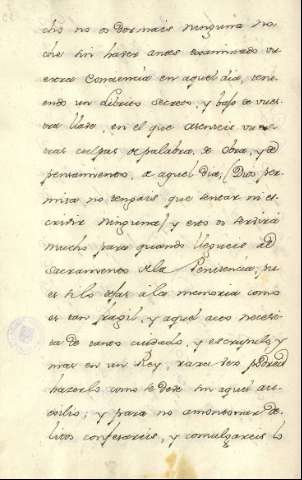 cho no os dormais ninguna no
che sin haver antes examinado vu
estra Conciencia en aquel dia, teni
endo un libreto secreto, y bajo de vues
tra llave, en el que asenteis vues
tras culpas de palabra, de obra, y de
pensamiento, de aquel dia, (Dios per
mita no tengais que sentar ni es
crivir ninguna) y esto os servirá
mucho para quando llegueis al
Sacramento de la Penitencia, pu
es si lo dejas á la memoria como
es tan fragil, y aquel acto necesi
ta de tanto cuidado, y escrupulo y
mas en un Rey, rara vez podreis
hazerlo como se deve sin aquel au
silio; y para no amontonar de
litos confesareis, y comulgareis lo